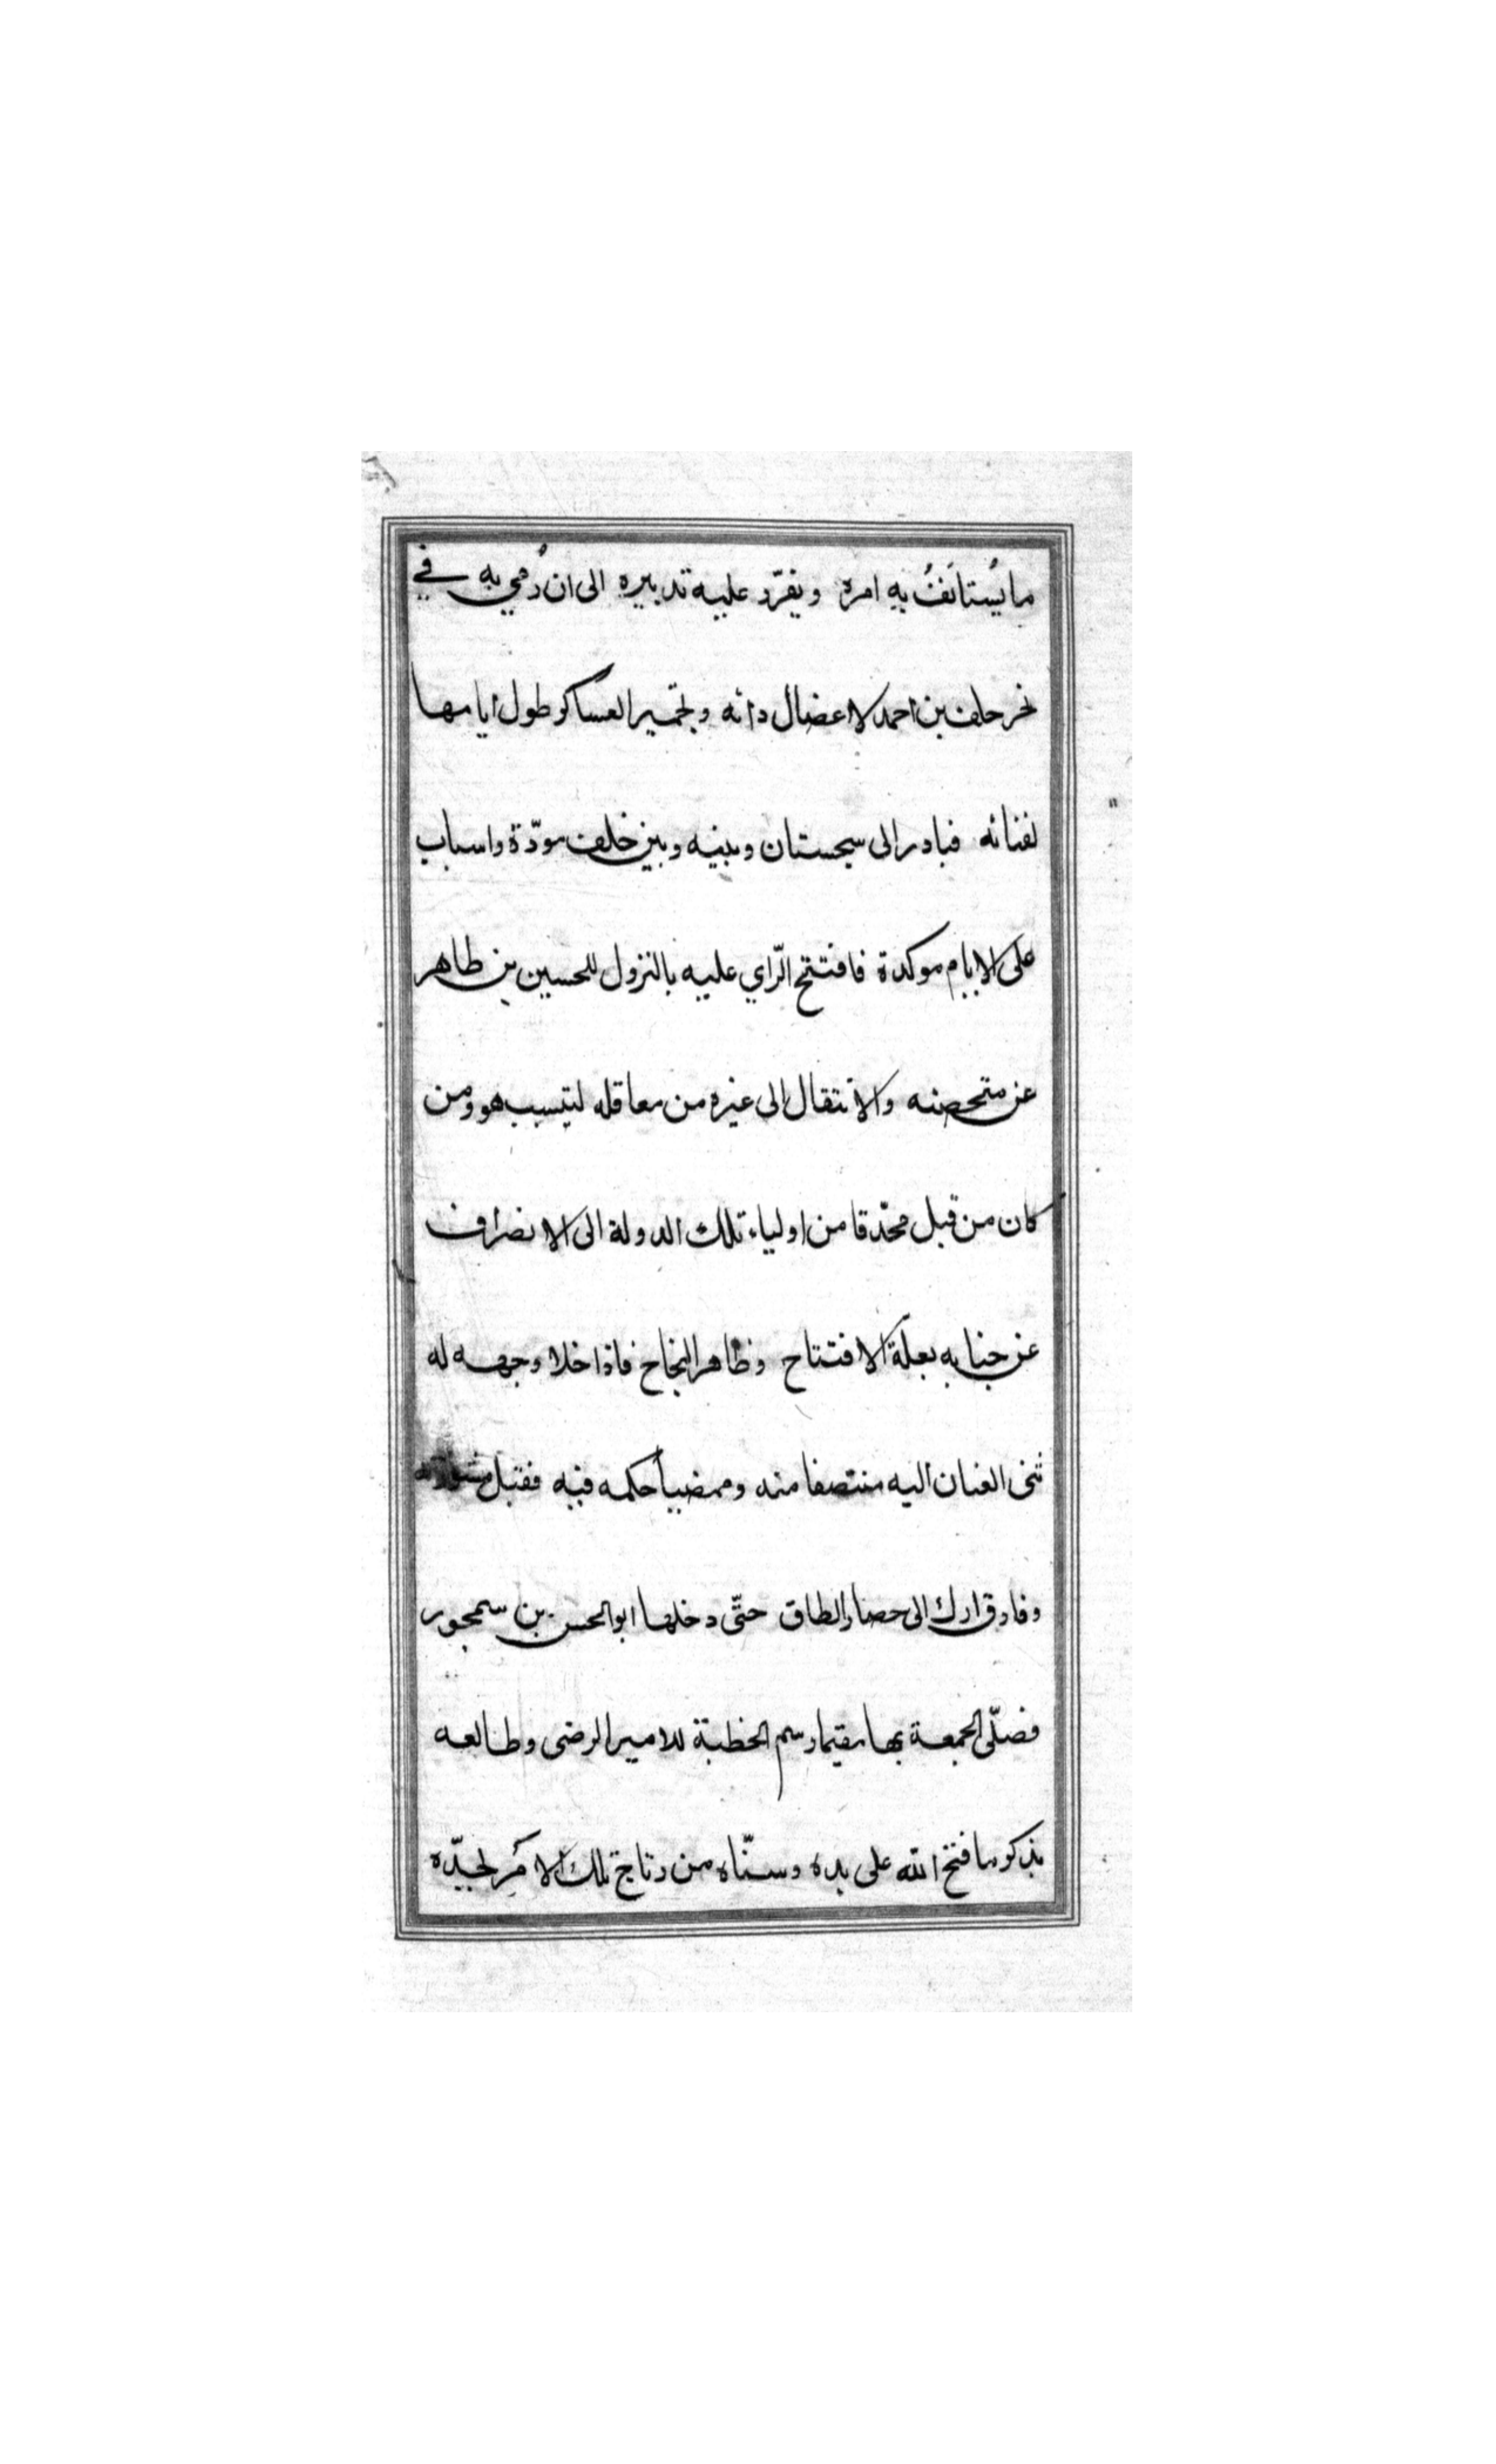 ما يُستانَفُ به امره ويفرّد عليه تدبيره الى ان رُمي به في
نحر خلف بن احمد لاعضال دائه وتجمير العساكر طول ايامها
لفنائه فبادر الى سجستان وبينه وبين خلف مودّة واسباب
على الايام موكدة فافتتح الرّاي عليه بالنزول للحسين بن طاهر
عن متحصنه والانتقال الى غيره من معاقله ليتسبب هو ومن
كان من قبل محدّقا من اولياء تلك الدولة الى الانصراف
عن جنابه بعلّة الافتتاح وظاهر النجاح فاذا خلا وجهه له
ثنى العنان اليه منتصفا منه وممضيا حكمه فيه فقبل
وفارق ارك الى حصار الطاق حتّى دخلها ابو الحسن بن سمجور
فصلّى الجمعة بها مقيما رسم الخطبة للامير الرضى وطالعه
بذكر ما فتح الله على يده وسنّاه من رتاج تلك الامر لجدّه